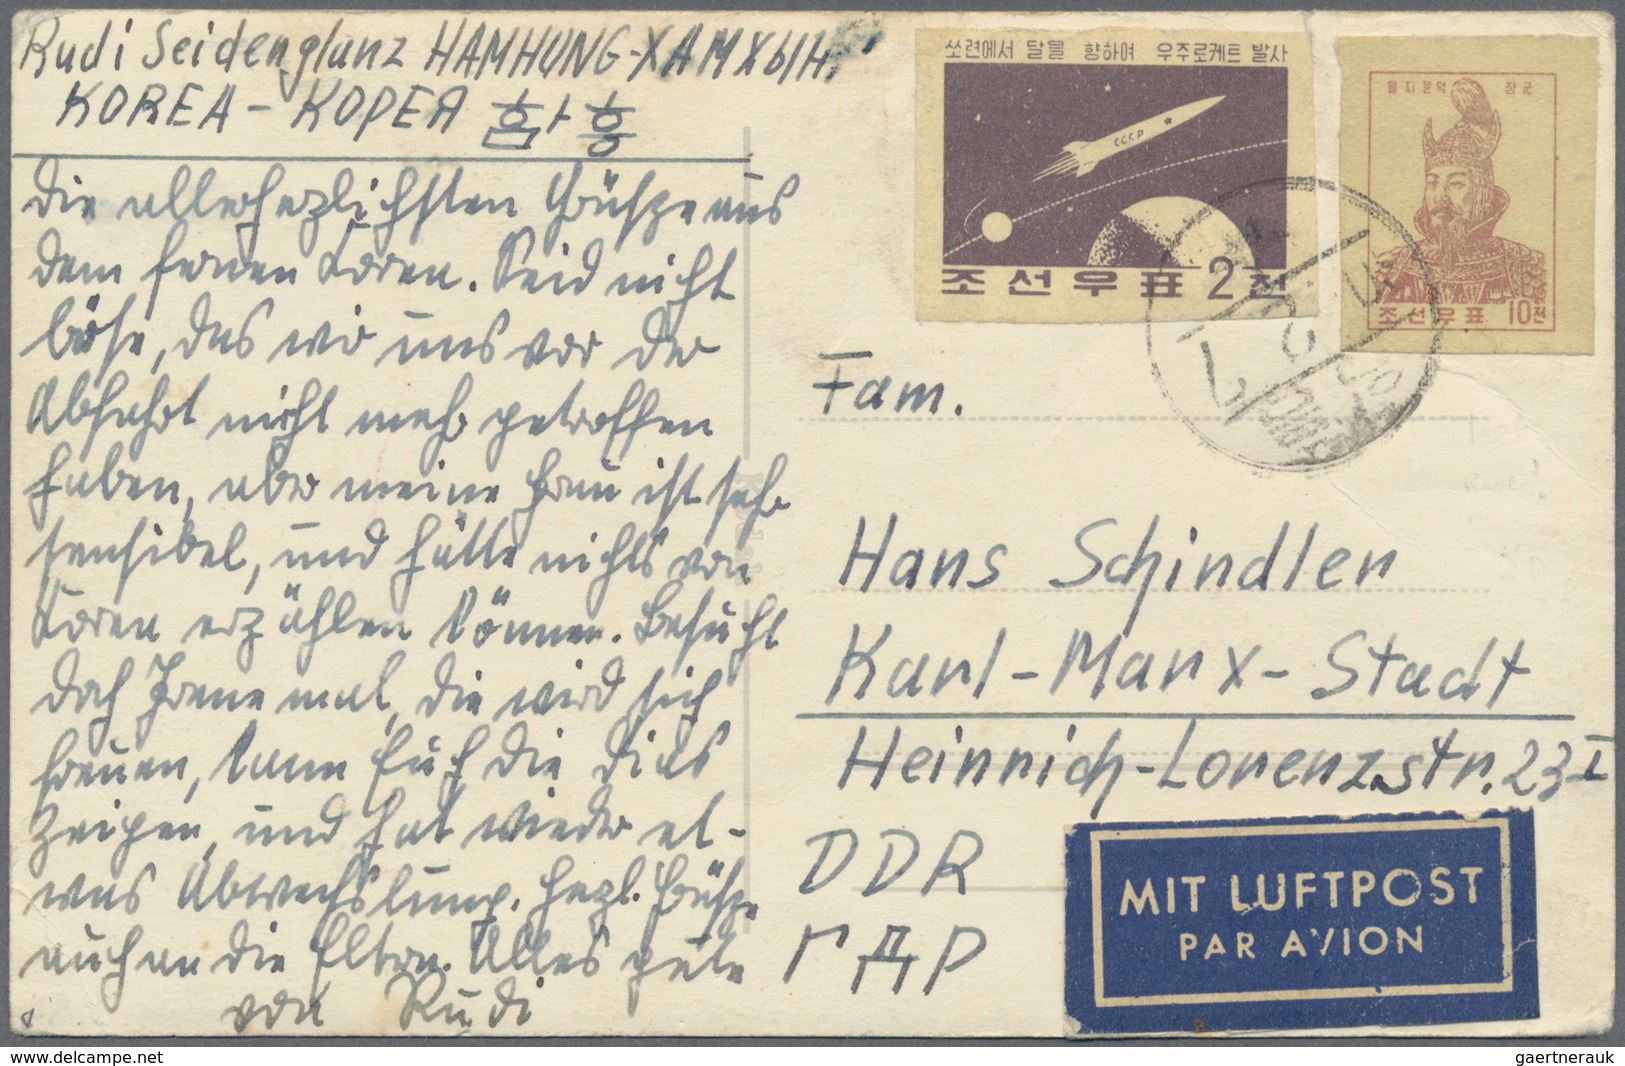 Rudi Seidenglanz HAMHUNG-ХАМХЫН
KOREA - КОРЕЯ 함흥
Die allerherzlichsten Grüsze aus
dem fernen Korea. Seid nicht
böse, das wir uns vor der
Abfahrt nicht mehr getroffen
haben, aber meine Frau ist sehr
sensibel, und hätte nichts von
Korea erzählen können. Besucht
doch Irene mal, die wird sich
freuen, kann Euch die Dias
zeigen, und hat wieder et-
was Abwechslung. Herzl. Grüsze
auch an die Eltern. Alles gute
von Rudi
쏘련에서 달을 향하여 우주로케트 발사
СССР
조선우표 2전
을지문덕 장군
조선우표 10전
Fam.
Hans Schindler
Karl-Marx-Stadt
Heinrich-Lorenzstr. 23 I
DDR
ГДР
MIT LUFTPOST
PAR AVION
www.delcampe.net
gaertnerauk